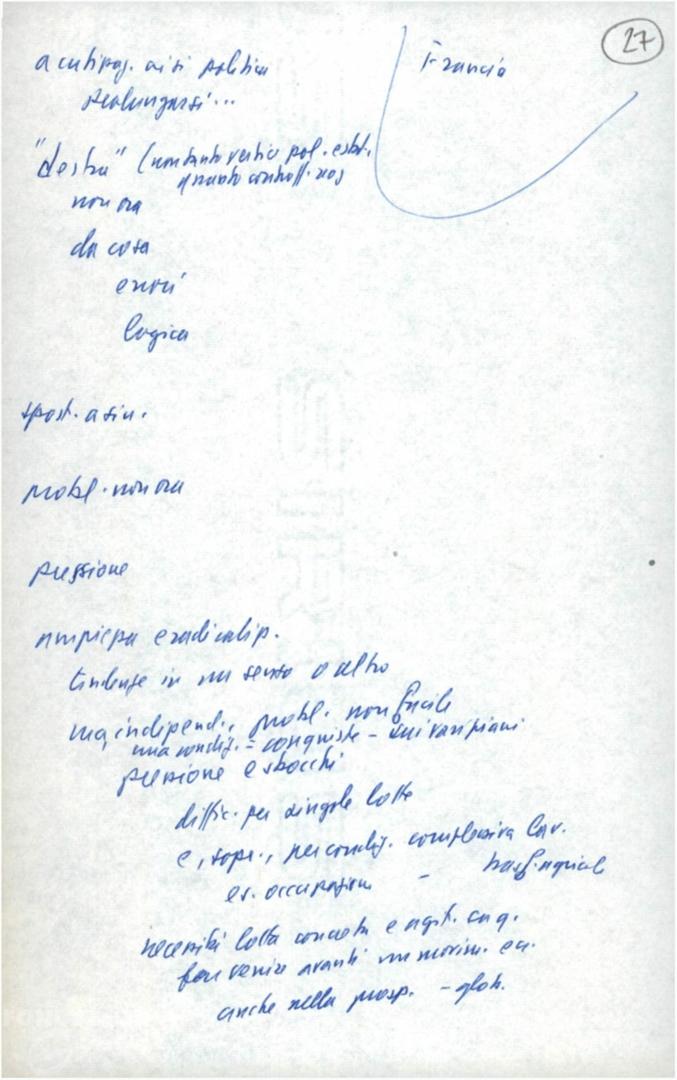 27
Francia
acutizzaz. crisi politica
prolungarsi...
"destra" (non tanto vertici pol. estr.
quanto controff. reaz
non ora
da cosa
errori
logica
spost. a sin.
probl. non ora
pressione
ampiezza e radicalizz.
tendenze in un senso o altro
ma, indipend., probl. non facile
una condiz. - conquiste - sui vari piani
pressione e sbocchi
diffic. per singole lotte
e, sopr., per condiz. complessiva lav.
es. occupazione - trasf. agricole
necessità lotta concreta e
far venire avanti un movim.
anche nella prosp. - glob.